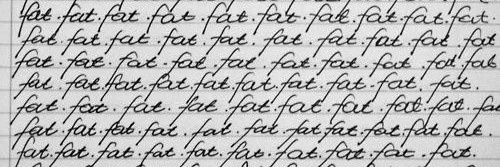 fat. fat. fat. fat. fat. fat. fat. fat. fat. fat.
fat. fat. fat. fat. fat. fat. fat. fat. fat. fat
fat. fat. fat. fat. fat. fat. fat. fat. fat. fat
fat. fat. fat. fat. fat. fat. fat. fat. fat. fat.
fat. fat. fat. fat. fat. fat. fat. fat. fat. fat
fat. fat. fat. fat. fat. fat. fat. fat. fat. fat. fat.
fat. fat. fat. fat. fat. fat. fat. fat. fat. fat.